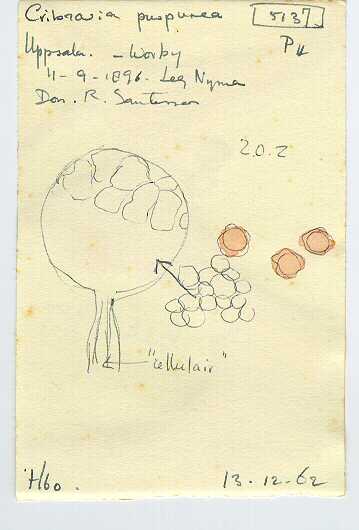 Cribraria purpurea
5137
Uppsala. - Worby
P
11-9-1896. Leg Nyman
Don. R. Santesson
2.0.2
"cellulair"
H60.
13-12-62